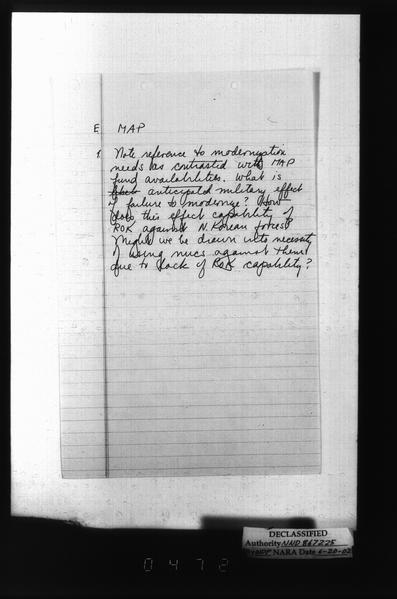 E. MAP
1. Note reference to modernization
needs as contrasted with MAP
fund availabilities. What is
anticipated military effect
of failure to modernize? How
does this effect capability of
ROK against N. Korean forces?
Might we be drawn into necessity
of using nucs against them
due to lack of ROK capability?
DECLASSIFIED
Authority NND 867225
NARA Date 6-20-02
0472